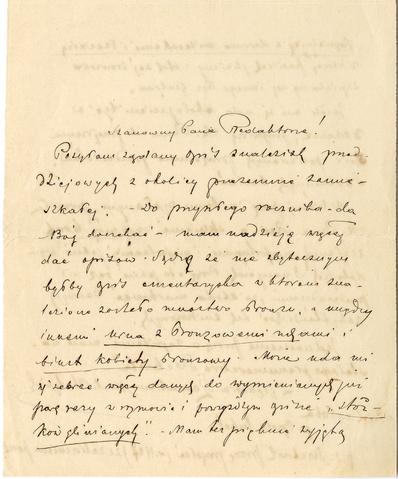 Szanowny Panie Redaktorze!
Posyłam żądany opis znalezisk przed-
dziejowych z okolicy przezemnie zamie-
szkałej. – Do przyszłego rocznika – da
Bóg doczekać – mam nadzieję więcej
dać opisów. Sądzę że nie zbytecznym
byłby opis cmentarzyska w którem zna-
lezione zostało mnóstwo bronzu, a między
innemi urna z bronzowemi uszami i
biust kobiety bronzowy. Może uda mi
się zebrać więcej danych do wymienianych już
parę razy w rysunku i powyższym opisie „stoż-
ków glinianych". – Mam też piękne